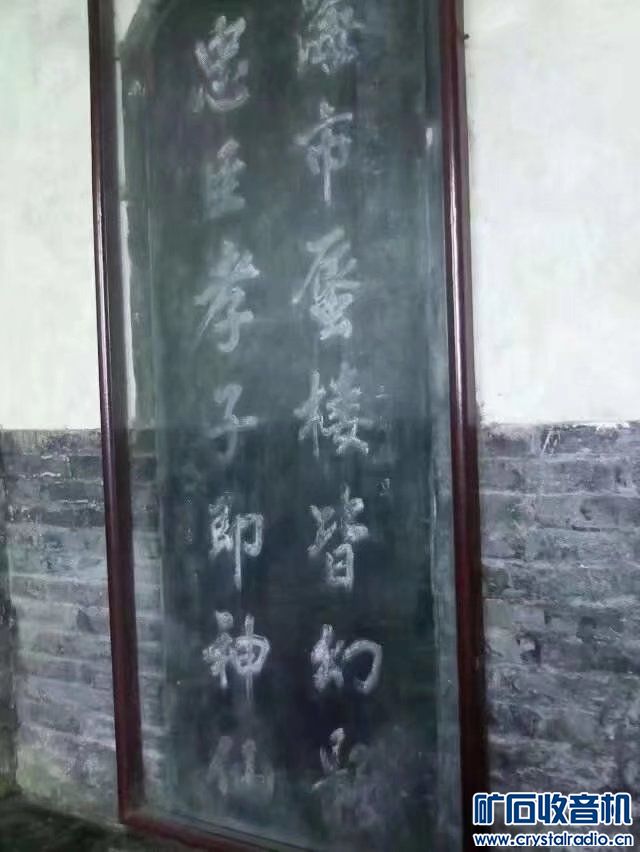 海市蜃楼皆幻影
忠臣孝子即神仙
矿石收音机
www.crystalradio.cn